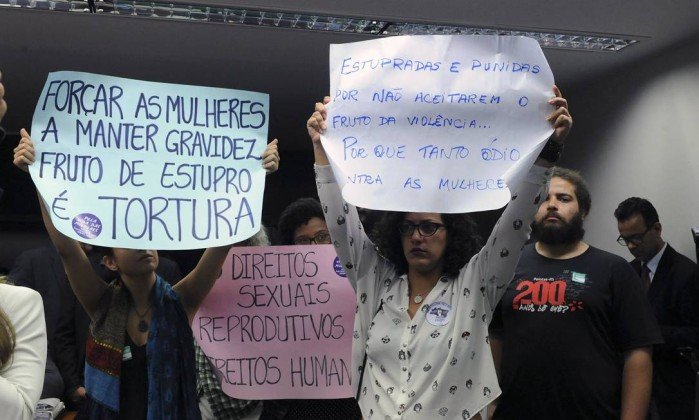 FORÇAR AS MULHERES
A MANTER GRAVIDEZ
FRUTO DE ESTUPRO
É TORTURA
ESTUPRADAS E PUNIDAS
POR NÃO ACEITAREM O
FRUTO DA VIOLÊNCIA...
POR QUE TANTO ÓDIO
NTRA AS MULHERE
DIREITOS
SEXUAIS
REPRODUTIVOS
IREITOS HUMAN
200
ANOS DE